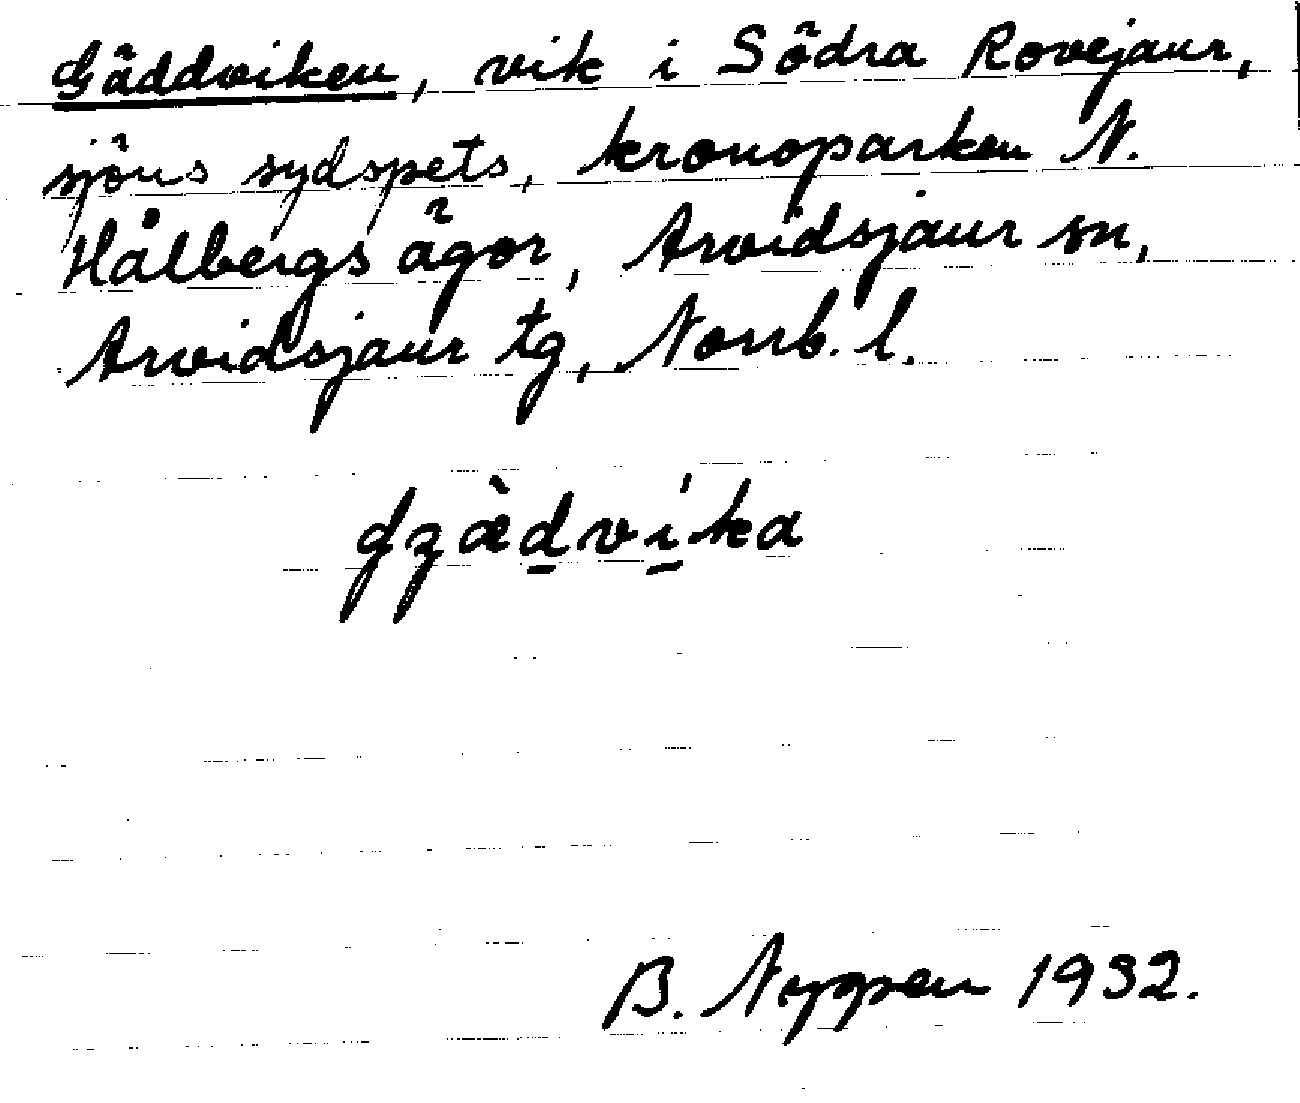 Gäddviken, vik i Södra Rovejaur,
sjöns sydspets, kronoparken N.
Hålbergs ägor, Arvidsjaur sn,
Arvidsjaur tg, Norrb. l.
gʒæ̀dvíka
B. Nygren 1932.